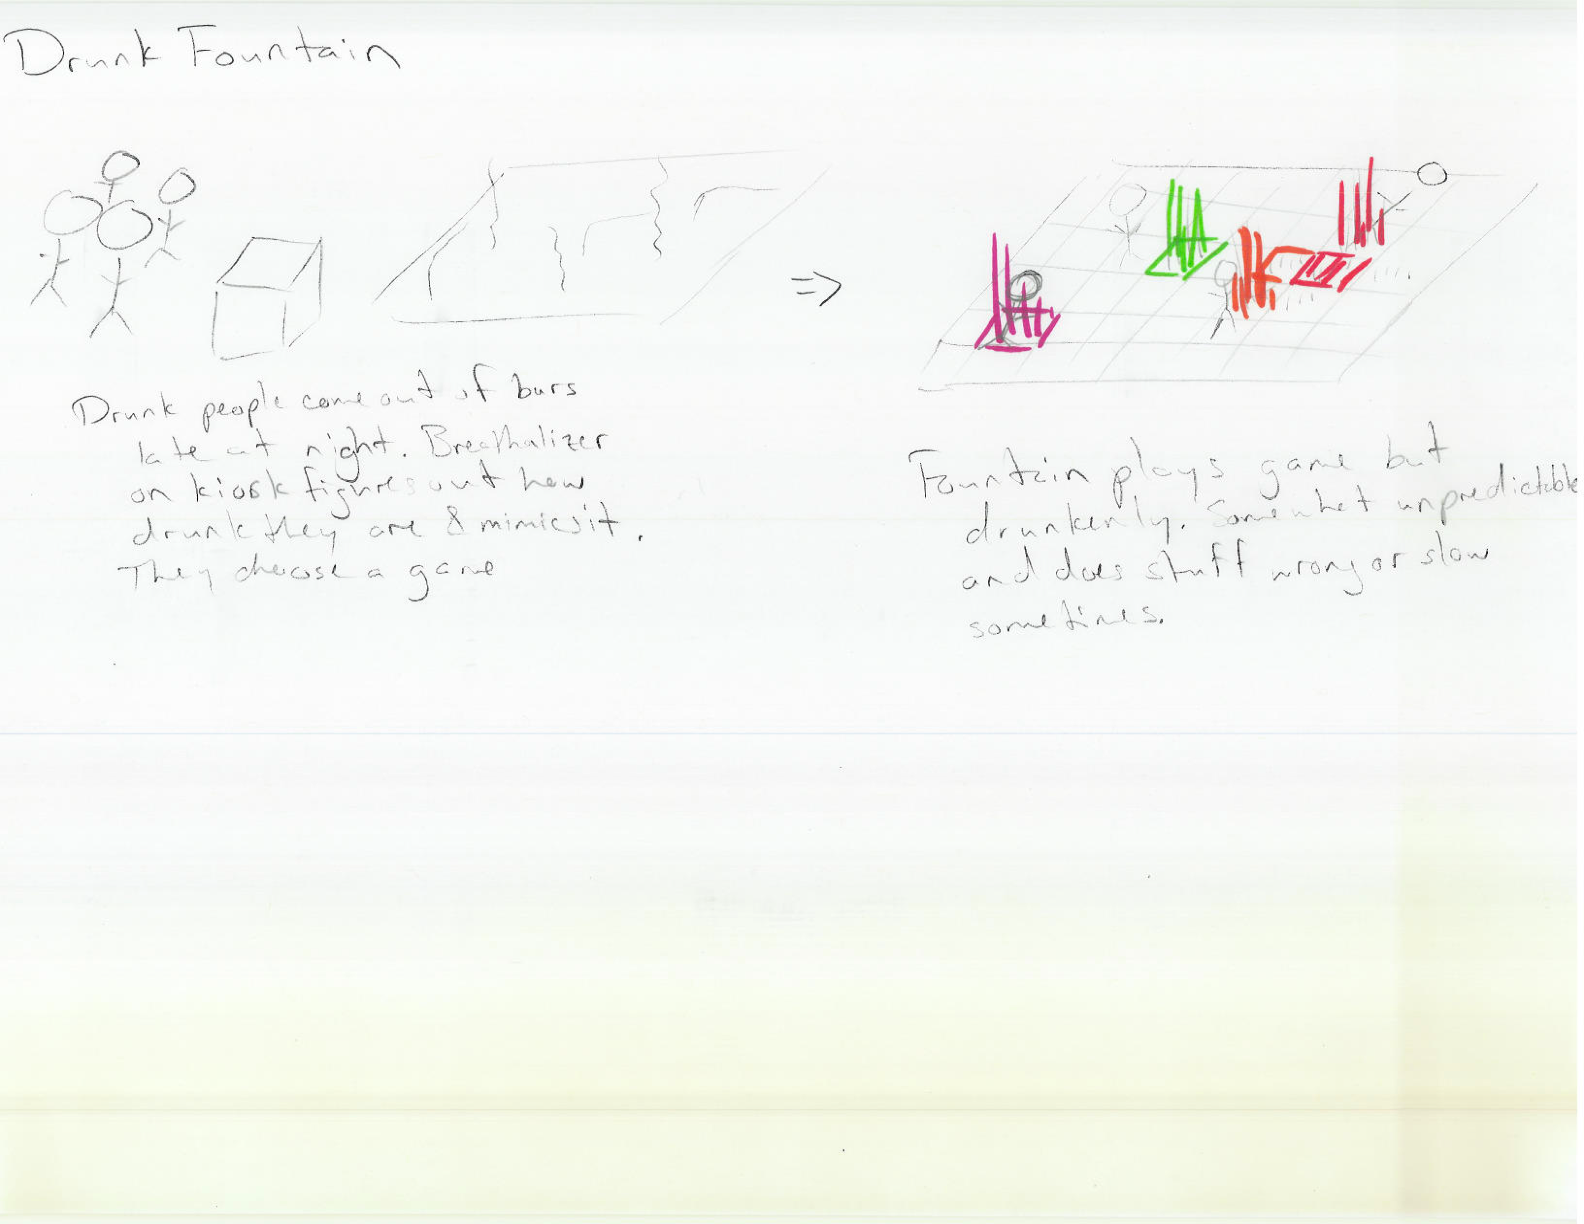 Drunk Fountain
Drunk people come out of bars
late at night. Breathalizer
on kiosk figures out how
drunk they are & mimics it.
They choose a game
Fountain plays game but
drunkenly. Somewhat unpredictable
and does stuff wrong or slow
sometimes.